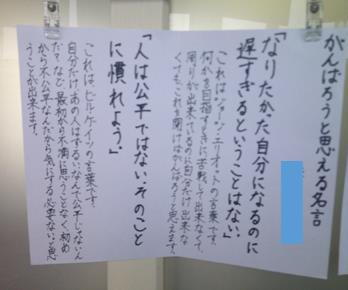 がんばろうと思える名言
「なりたかった自分になるのに
遅すぎるということはない」
これはジョージ・エリオットの言葉です。
何かを目指すときに苦戦して出来なくて、
周りが出来ているのに自分だけ出来な
くてもこれを聞けばがんばろうと思えます。
「人は公平ではない。そのこと
に慣れよう。」
これはビルゲイツの言葉です。
自分だけ、あの人はずるい、なんで公平じゃないん
だ?など、最初から不満に思うことなく、初め
から不公平なんだから気にする必要でないと思
うことが出来ます。